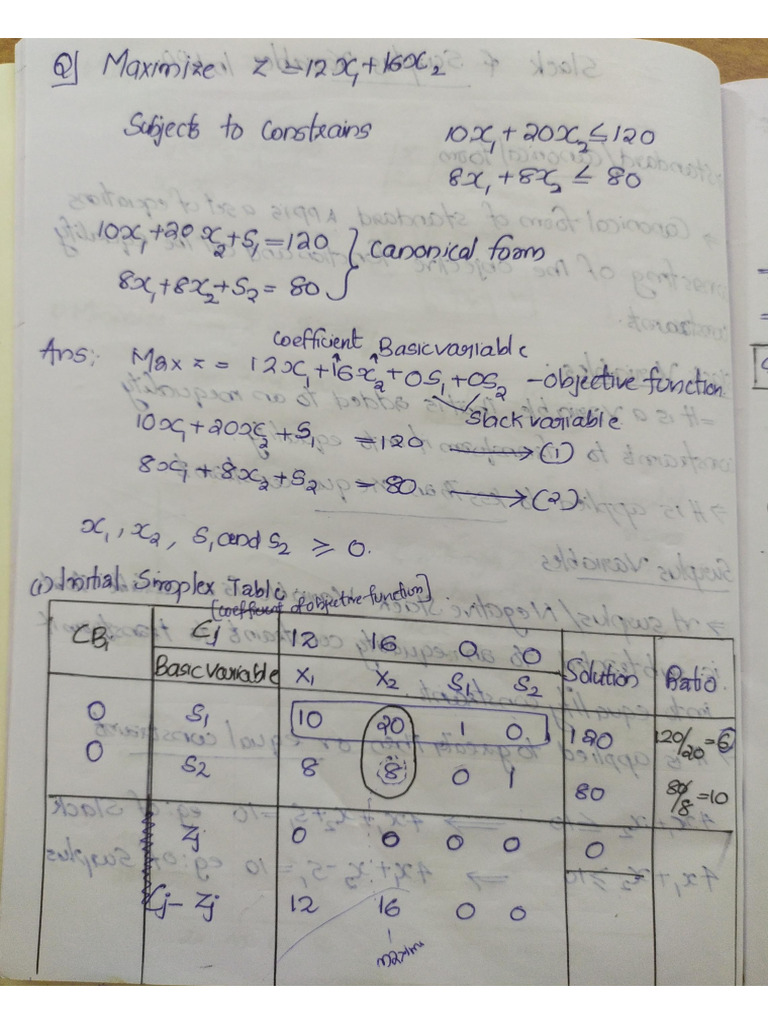 Q] Maximize z = 12x₁+16x₂
Subjects to constrains 10x₁+20x₂ ≤ 120
8x₁+8x₂ ≤ 80
10x₁+20x₂+S₁=120
8x₁+8x₂+S₂=80
} Canonical form
coefficient Basic variable
Ans: Max z = 12x₁+16x₂+0S₁+0S₂ - objective function
Slack variable
10x₁+20x₂+S₁ =120 → (1)
8x₁+8x₂+S₂ = 80 → (2)
x₁, x₂, S₁ and S₂ ≥ 0.
(i) Initial Simplex Table
[coefficient of objective function]
CBi Cj 12 16 0 0 Solution Ratio
Basic variable X₁ X₂ S₁ S₂
0 S₁ 10 20 1 0 120 120/20=6
0 S₂ 8 8 0 1 80 80/8=10
Zj 0 0 0 0 0
Cj-Zj 12 16 0 0